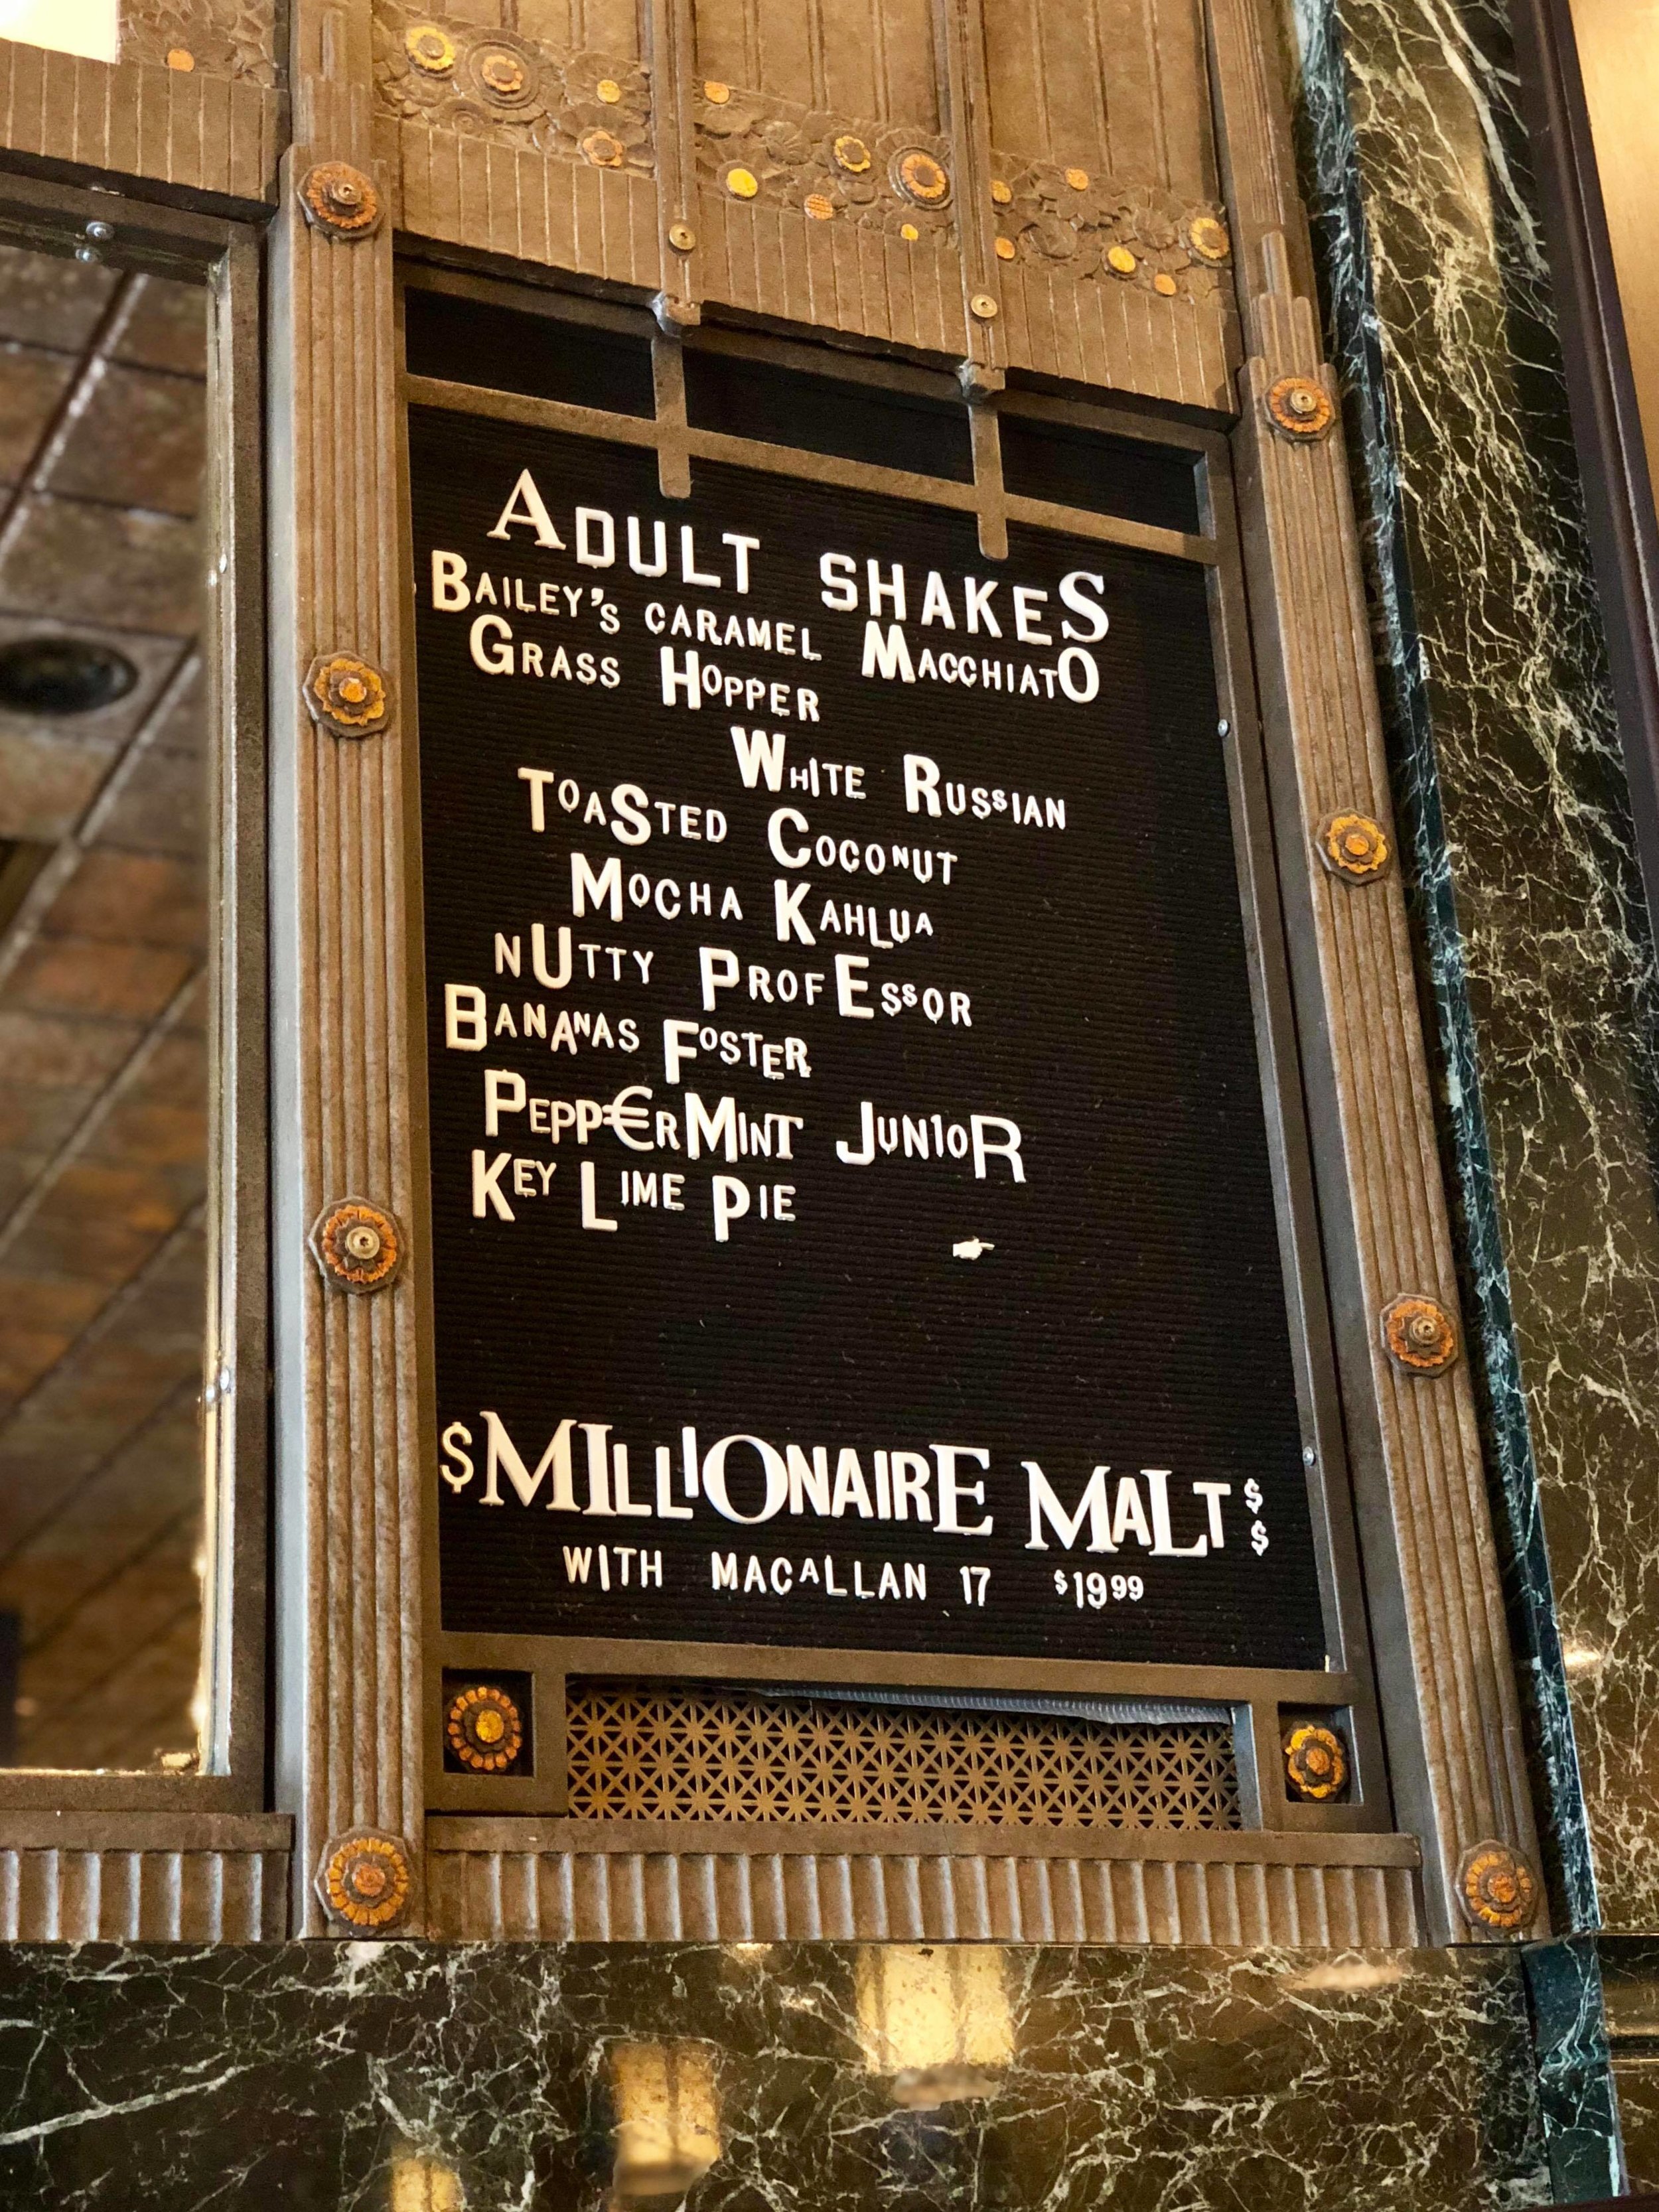 ADULT SHAKES
BAILEY'S CARAMEL MACCHIATO
GRASS HOPPER
WHITE RUSSIAN
TOASTED COCONUT
MOCHA KAHLUA
NUTTY PROFESSOR
BANANAS FOSTER
PEPP€RMINT JUN1OR
KEY LIME PIE
$MILLIONAIRE MALT$$
WITH MACALLAN 17 $19.99